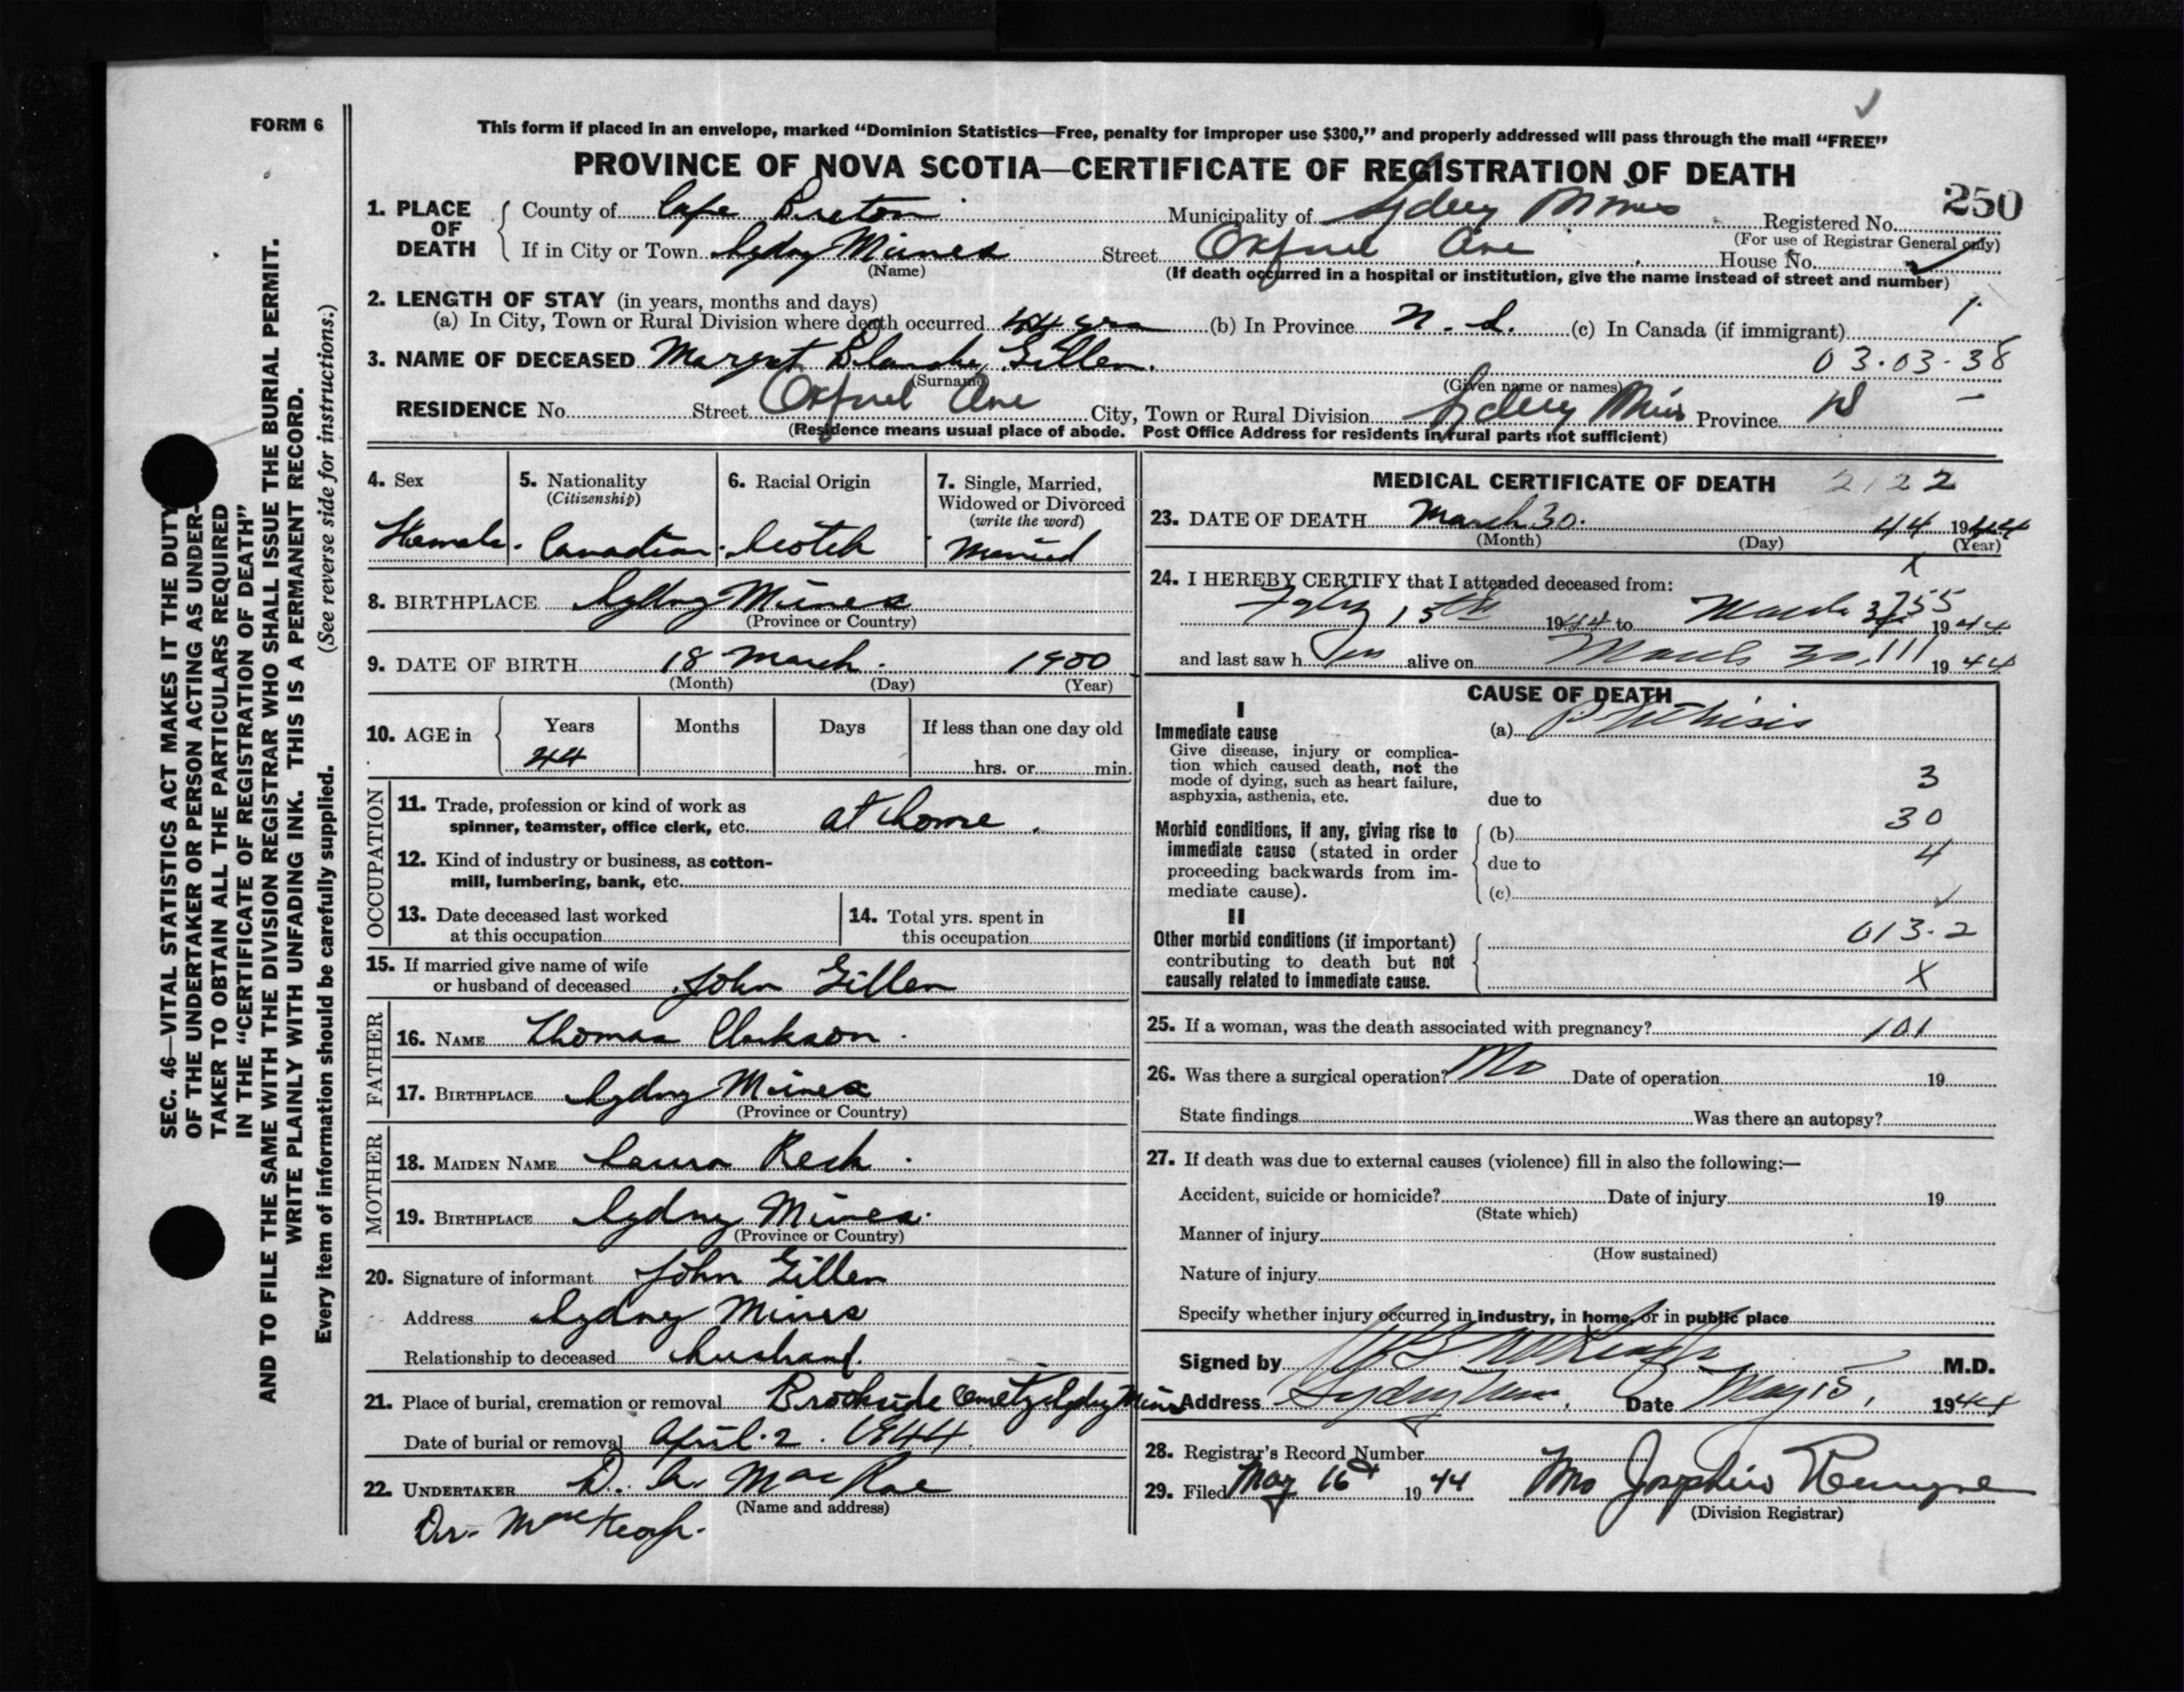 FORM 6
SEC. 46—VITAL STATISTICS ACT MAKES IT THE DUTY
OF THE UNDERTAKER OR PERSON ACTING AS UNDER-
TAKER TO OBTAIN ALL THE PARTICULARS REQUIRED
IN THE "CERTIFICATE OF REGISTRATION OF DEATH"
AND TO FILE THE SAME WITH THE DIVISION REGISTRAR WHO SHALL ISSUE THE BURIAL PERMIT.
WRITE PLAINLY WITH UNFADING INK. THIS IS A PERMANENT RECORD.
Every item of information should be carefully supplied. (See reverse side for instructions.)
This form if placed in an envelope, marked "Dominion Statistics—Free, penalty for improper use $300," and properly addressed will pass through the mail "FREE"
PROVINCE OF NOVA SCOTIA—CERTIFICATE OF REGISTRATION OF DEATH
250
1. PLACE OF DEATH
County of Cape Breton Municipality of Sydney Mines Registered No.
(For use of Registrar General only)
If in City or Town Sydney Mines Street Oxford Ave House No.
(Name) (If death occurred in a hospital or institution, give the name instead of street and number)
2. LENGTH OF STAY (in years, months and days)
(a) In City, Town or Rural Division where death occurred 44 yrs (b) In Province N. S. (c) In Canada (if immigrant) 1.
3. NAME OF DECEASED Margret Blanche Gillen. 03.03-38
(Surname) (Given name or names)
RESIDENCE No. Street Oxford Ave City, Town or Rural Division Sydney Mines Province NS
(Residence means usual place of abode. Post Office Address for residents in rural parts not sufficient)
4. Sex
Female.
5. Nationality
(Citizenship)
Canadian.
6. Racial Origin
Scotch
7. Single, Married,
Widowed or Divorced
(write the word)
Married
8. BIRTHPLACE Sydney Mines
(Province or Country)
9. DATE OF BIRTH 18 March. 1900
(Month) (Day) (Year)
10. AGE in
Years Months Days If less than one day old
44 hrs. or min.
OCCUPATION
11. Trade, profession or kind of work as
spinner, teamster, office clerk, etc. at home.
12. Kind of industry or business, as cotton-
mill, lumbering, bank, etc.
13. Date deceased last worked
at this occupation
14. Total yrs. spent in
this occupation
15. If married give name of wife
or husband of deceased John Gillen
FATHER
16. NAME Thomas Clarkson.
17. BIRTHPLACE Sydney Mines
(Province or Country)
MOTHER
18. MAIDEN NAME Laura
19. BIRTHPLACE Sydney Mines.
(Province or Country)
20. Signature of informant John Gillen
Address Sydney Mines
Relationship to deceased husband.
21. Place of burial, cremation or removal Brookside Cemetry Sydney Mines
Date of burial or removal April. 2. 1944.
22. UNDERTAKER D. A. MacRae
(Name and address)
Dr. MacKeogh.
MEDICAL CERTIFICATE OF DEATH 2122
23. DATE OF DEATH March 30. 44 1944
(Month) (Day) (Year)
24. I HEREBY CERTIFY that I attended deceased from: x
Feby 15th 1944 to March 1944
755
and last saw h er alive on March 30, 111 1944
CAUSE OF DEATH
I
Immediate cause
Give disease, injury or complica-
tion which caused death, not the
mode of dying, such as heart failure,
asphyxia, asthenia, etc.
(a) Phthisis
3
due to
30
Morbid conditions, if any, giving rise to
immediate cause (stated in order
proceeding backwards from im-
mediate cause).
(b)
4
due to
(c)
II
Other morbid conditions (if important)
contributing to death but not
causally related to immediate cause.
013.2
X
25. If a woman, was the death associated with pregnancy? 101
26. Was there a surgical operation? No Date of operation 19
State findings Was there an autopsy?
27. If death was due to external causes (violence) fill in also the following:—
Accident, suicide or homicide? Date of injury 19
(State which)
Manner of injury
(How sustained)
Nature of injury
Specify whether injury occurred in industry, in home, or in public place
Signed by M.D.
Address Sydney Mines. Date May 15, 1944
28. Registrar's Record Number
29. Filed May 16th 1944 Mrs Josephine
(Division Registrar)